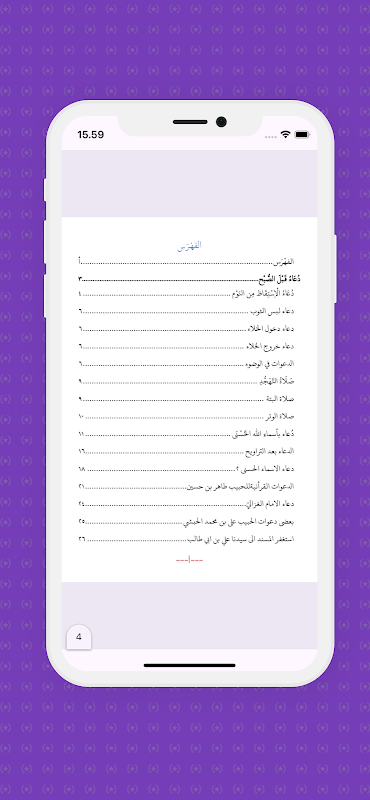 15.59
الفَهْرَس
الفَهْرَس......أ
دُعَاءُ قَبْلَ الصُّبْحِ......٣
دُعَاءُ الْاِسْتِيْقَاظِ مِنَ النَّوْمِ......٤
دعاء لبس الثوب......٦
دعاء دخول الخلاء......٦
دعاء خروج الخلاء......٦
الدعوات في الوضوء......٦
صَلَاةُ التَّهَجُّدِ......٩
صلاة البتة......٩
صلاة الوتر......١٠
دُعاء بأسماءِ الله الحُسْنَى......١١
الدعاء بعد التراويح......١٦
دعاء الاسماء الحسنى ٢......١٨
الدعوات القرآنيةللحبيب طاهر بن حسين......٢١
دعاء الامام الغزاليّ......٢٤
بعض دعوات الحبيب علي بن محمد الحبشي......٢٥
استغفر المسند الى سيدنا علي بن ابي طالب......٢٦
---أ---
4